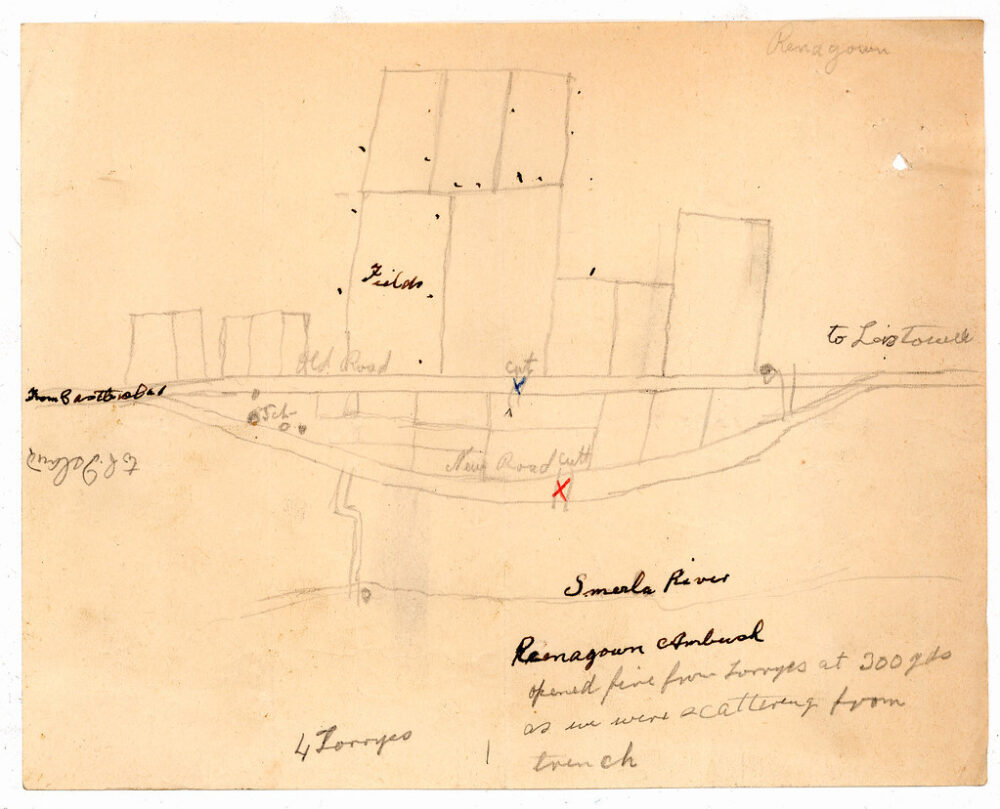 Renagown
Fields
to Listowell
Old Road
cut
From Castleisland
Sch
New Road cutt
X
Smerla River
Reenagown Ambush
opened fire from Lorryes at 300 yds
as we were scattering from
trench
4 Lorryes